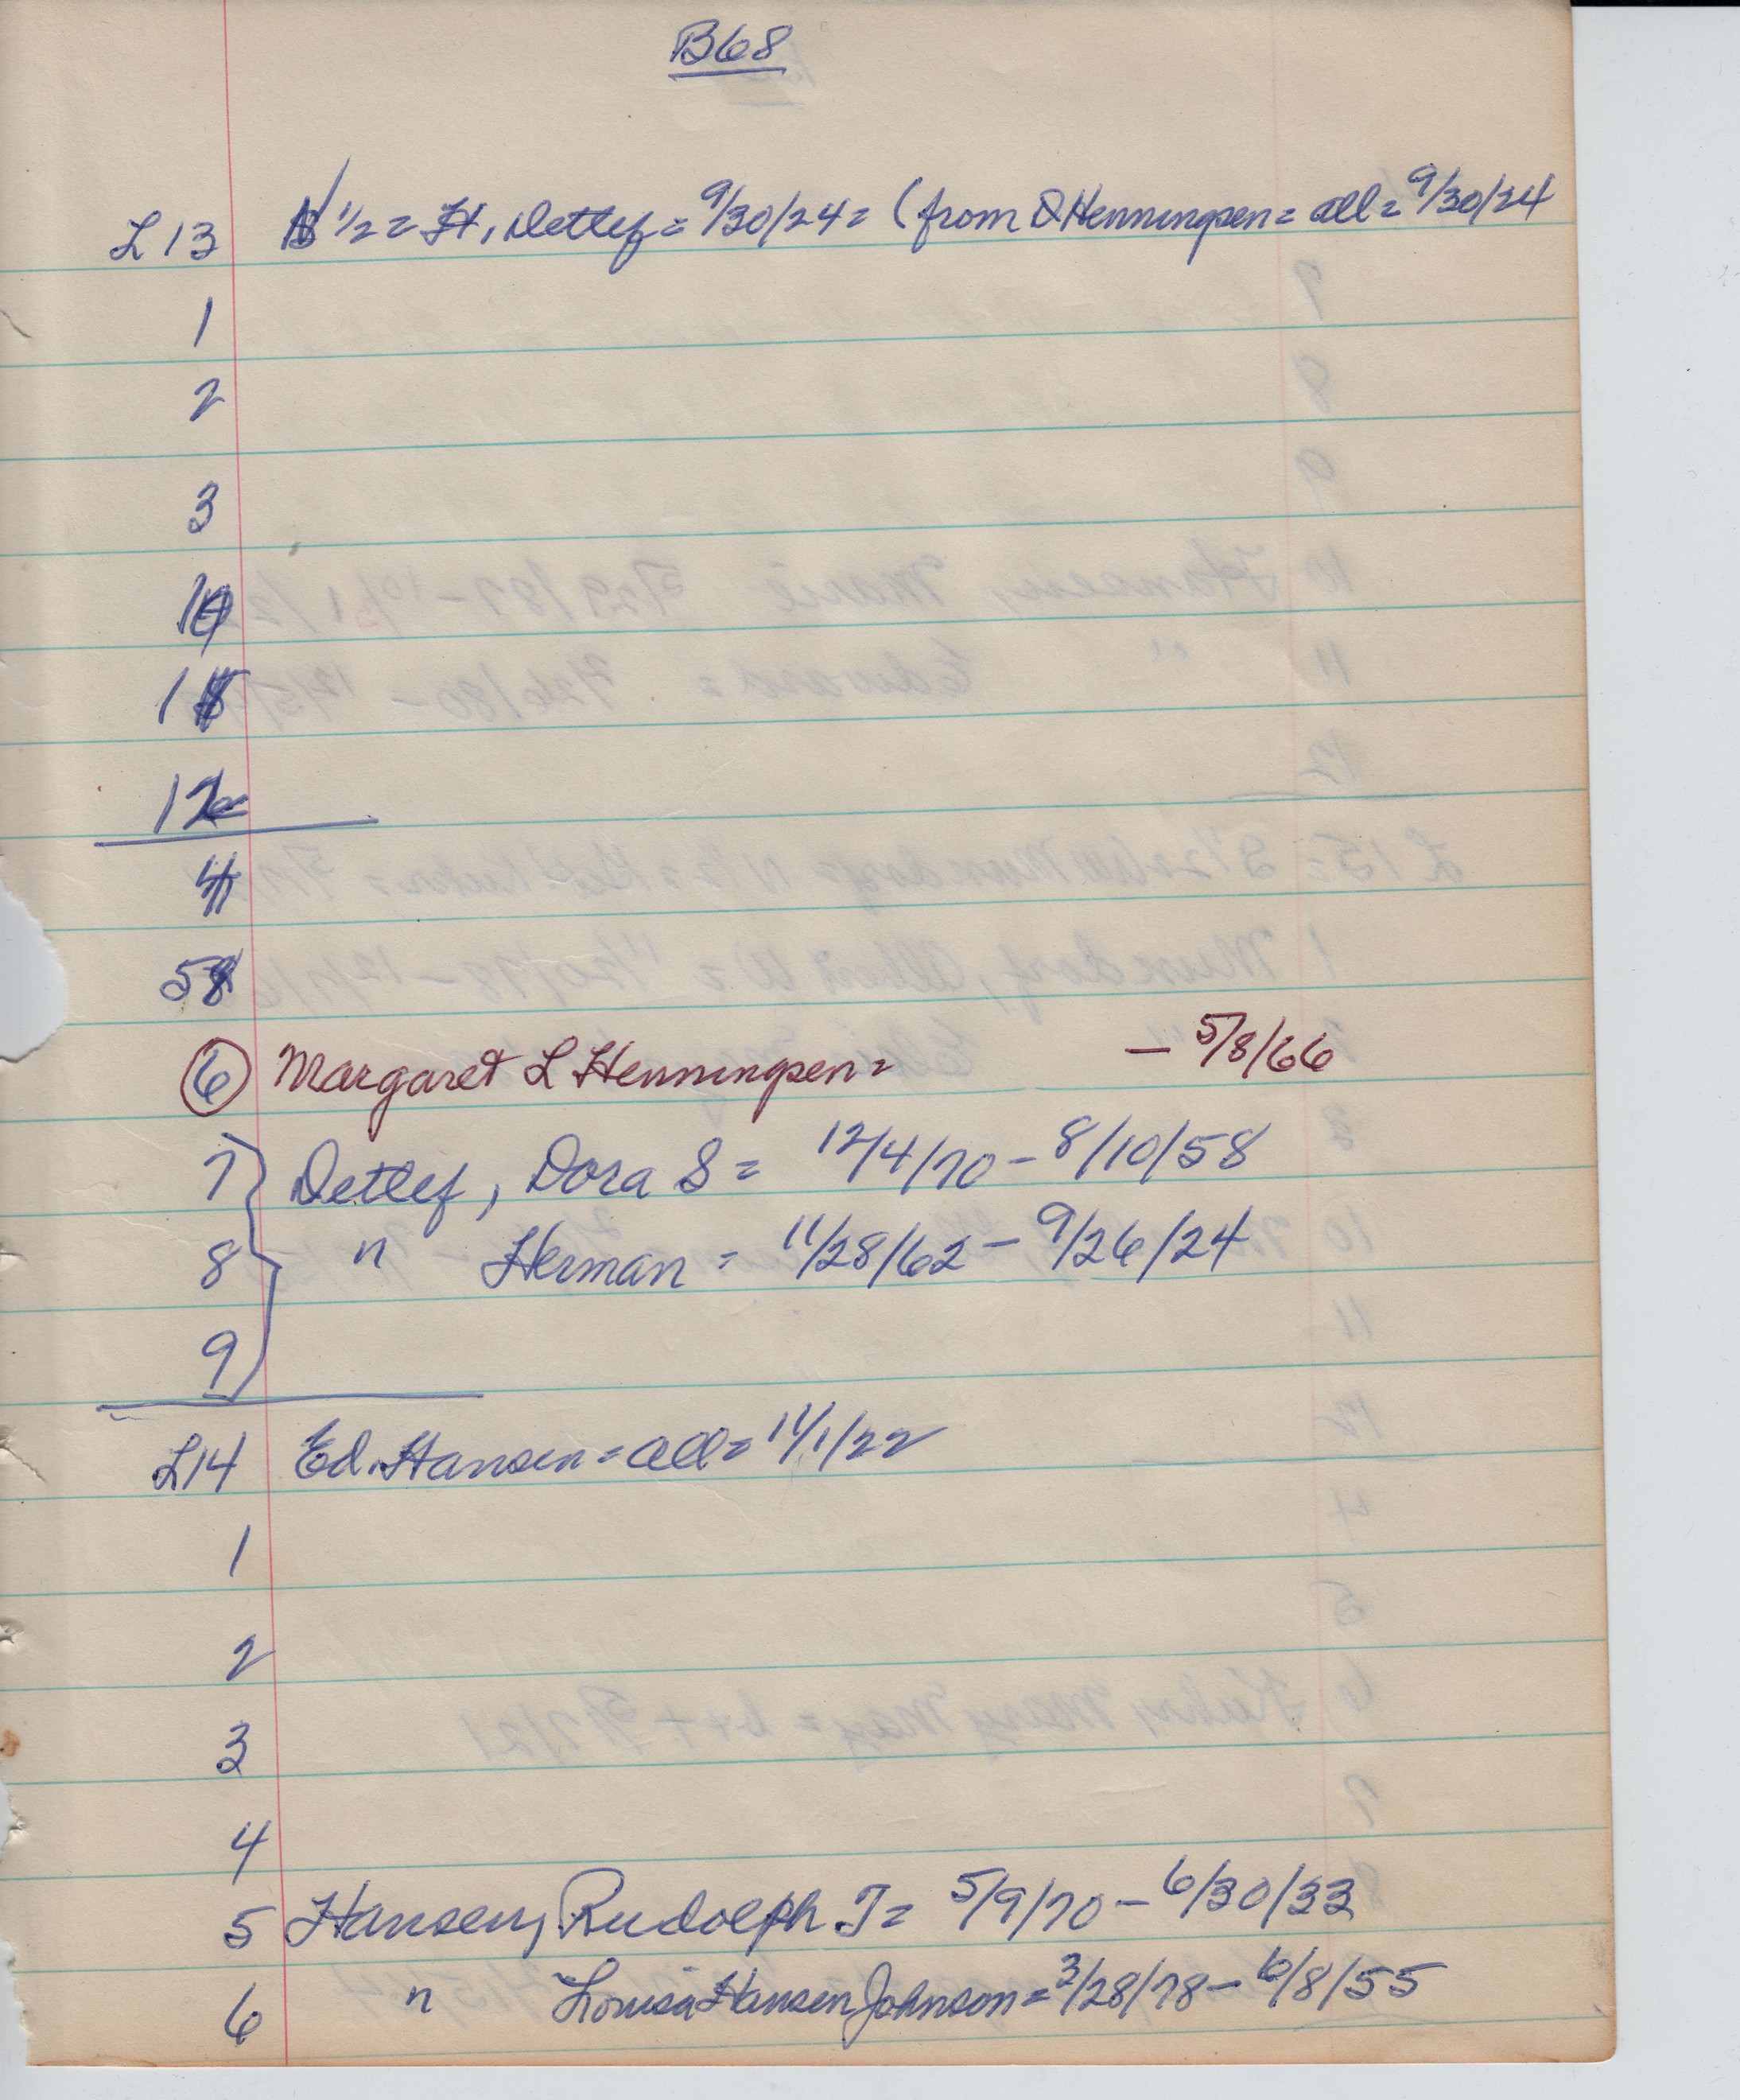 B68
L13 N 1/2 = H. Detlef = 9/30/24 = (from D Henningsen = all = 9/30/24
1
2
3
10
11
12
4
5
6 Margaret L Henningsen = – 5/8/66
7 Detlef, Dora S = 12/4/70 – 8/10/58
8 " Herman = 11/28/62 – 9/26/24
9
L14 Ed. Hansen = all = 11/1/22
1
2
3
4
5 Hansen, Rudolph J = 5/9/70 – 6/30/33
6 " Louisa Hansen Johnson = 3/28/78 – 6/8/55